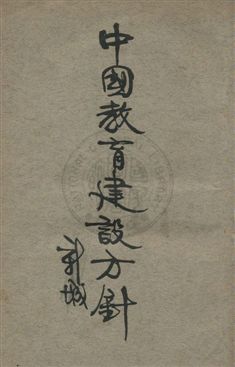 中國教育建設方針
新城